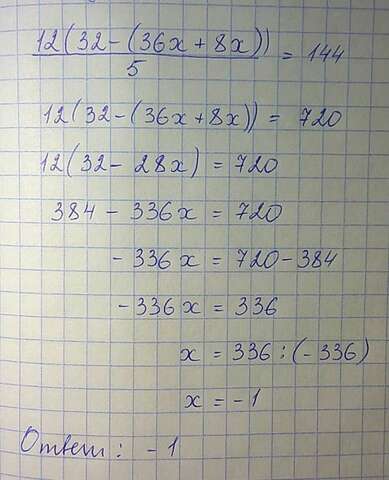 12(32-(36x+8x))
/5 = 144
12(32-(36x+8x)) = 720
12(32-28x) = 720
384 - 336x = 720
- 336x = 720-384
- 336x = 336
x = 336 : (-336)
x = -1
Ответ: -1